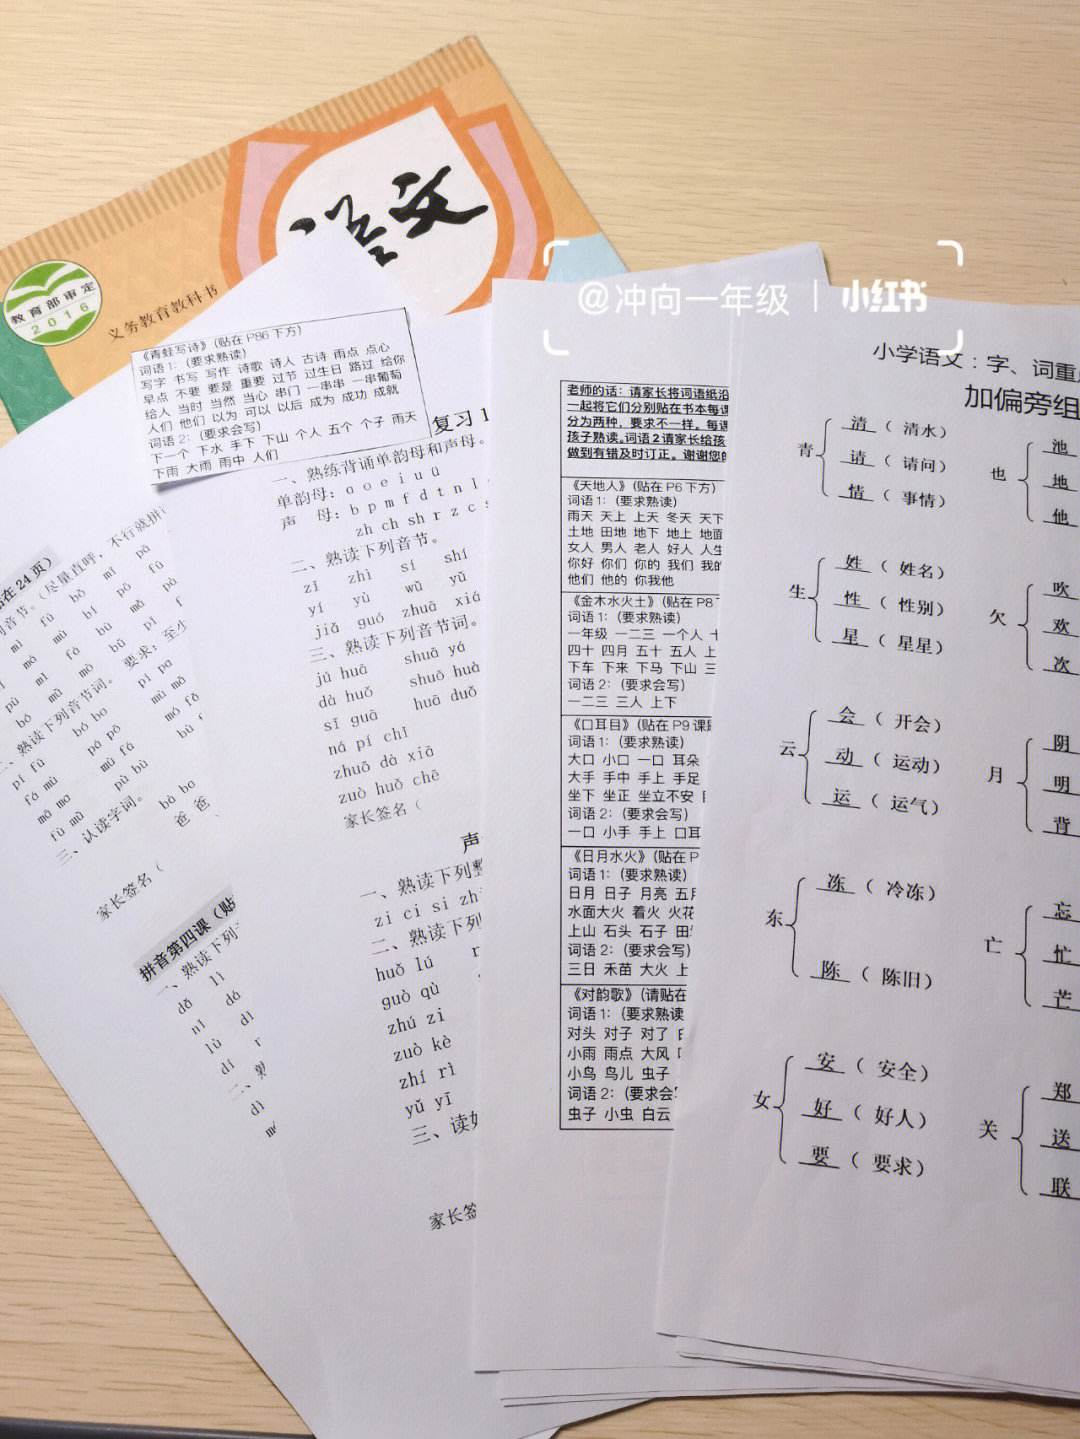 语文
教育部审定
2016
义务教育教科书
@冲向一年级 | 小红书
《青蛙写诗》(贴在 P86 下方)
词语 1:(要求熟读)
写字 书写 写作 诗歌 诗人 古诗 雨点 点心
早点 不要 要是 重要 过节 过生日 路过 给你
给人 当时 当然 当心 串门 一串串 一串葡萄
人们 他们 以为 可以 以后 成为 成功 成就
词语 2:(要求会写)
下一个 下水 手下 下山 个人 五个 个子 雨天
下雨 大雨 雨中 人们
在 24 页)
(尽量直呼,不行就拼
二、熟读下列音节词。 要求:至少
三、认读字词。
爸 爸
家长签名(
拼音第四课(贴
一、熟读下列
dǎ lì
复习 1
一、熟练背诵单韵母和声母。
单韵母:a o e i u ü
声 母:b p m f d t n l
zh ch sh r z c s
二、熟读下列音节。
zǐ zhì sí shí
yí yù wū yǔ
jiǎ guó zhuā xiá
三、熟读下列音节词。
jú huā shuā yá
dà huǒ shuō huà
sī guā huā duǒ
ná pí chǐ
zhuō dà xiā
zuò huǒ chē
家长签名(
声
一、熟读下列整
zi ci si zh
二、熟读下列
huǒ lú
guò qù
zhú zi
zuò kè
zhí rì
yǔ yī
三、读
家长签
老师的话:请家长将词语纸沿
一起将它们分别贴在书本每课
分为两种,要求不一样。每课
孩子熟读。词语 2 请家长给孩
做到有错及时订正。谢谢您的
《天地人》(贴在 P6 下方)
词语 1:(要求熟读)
雨天 天上 上天 冬天 天下
土地 田地 地下 地上 地面
女人 男人 老人 好人 人生
你好 你们 你的 我们 我的
他们 他的 你我他
《金木水火土》(贴在 P8
词语 1:(要求熟读)
一年级 一二三 一个人 十
四十 四月 五十 五人 上
下车 下来 下马 下山 三
词语 2:(要求会写)
一二三 三人 上下
《口耳目》(贴在 P9 课
词语 1:(要求熟读)
大口 小口 一口 耳朵
大手 手中 手上 手足
坐下 坐正 坐立不安
词语 2:(要求会写)
一口 小手 手上 口耳
《日月水火》(贴在 P
词语 1:(要求熟读)
日月 日子 月亮 五月
水面大火 着火 火花
上山 石头 石子 田
词语 2:(要求会写)
三日 禾苗 大火 上
《对韵歌》(请贴在
词语 1:(要求熟读
对头 对子 对了
小雨 雨点 大风
小鸟 鸟儿 虫子
词语 2:(要求会
虫子 小虫 白云
小学语文:字、词重
加偏旁组
青 清(清水)
请(请问)
情(事情)
也 池
地
他
生 姓(姓名)
性(性别)
星(星星)
欠 吹
欢
次
云 会(开会)
动(运动)
运(运气)
月 阴
明
背
东 冻(冷冻)
陈(陈旧)
亡 忘
忙
芒
女 安(安全)
好(好人)
要(要求)
关 郑
送
联